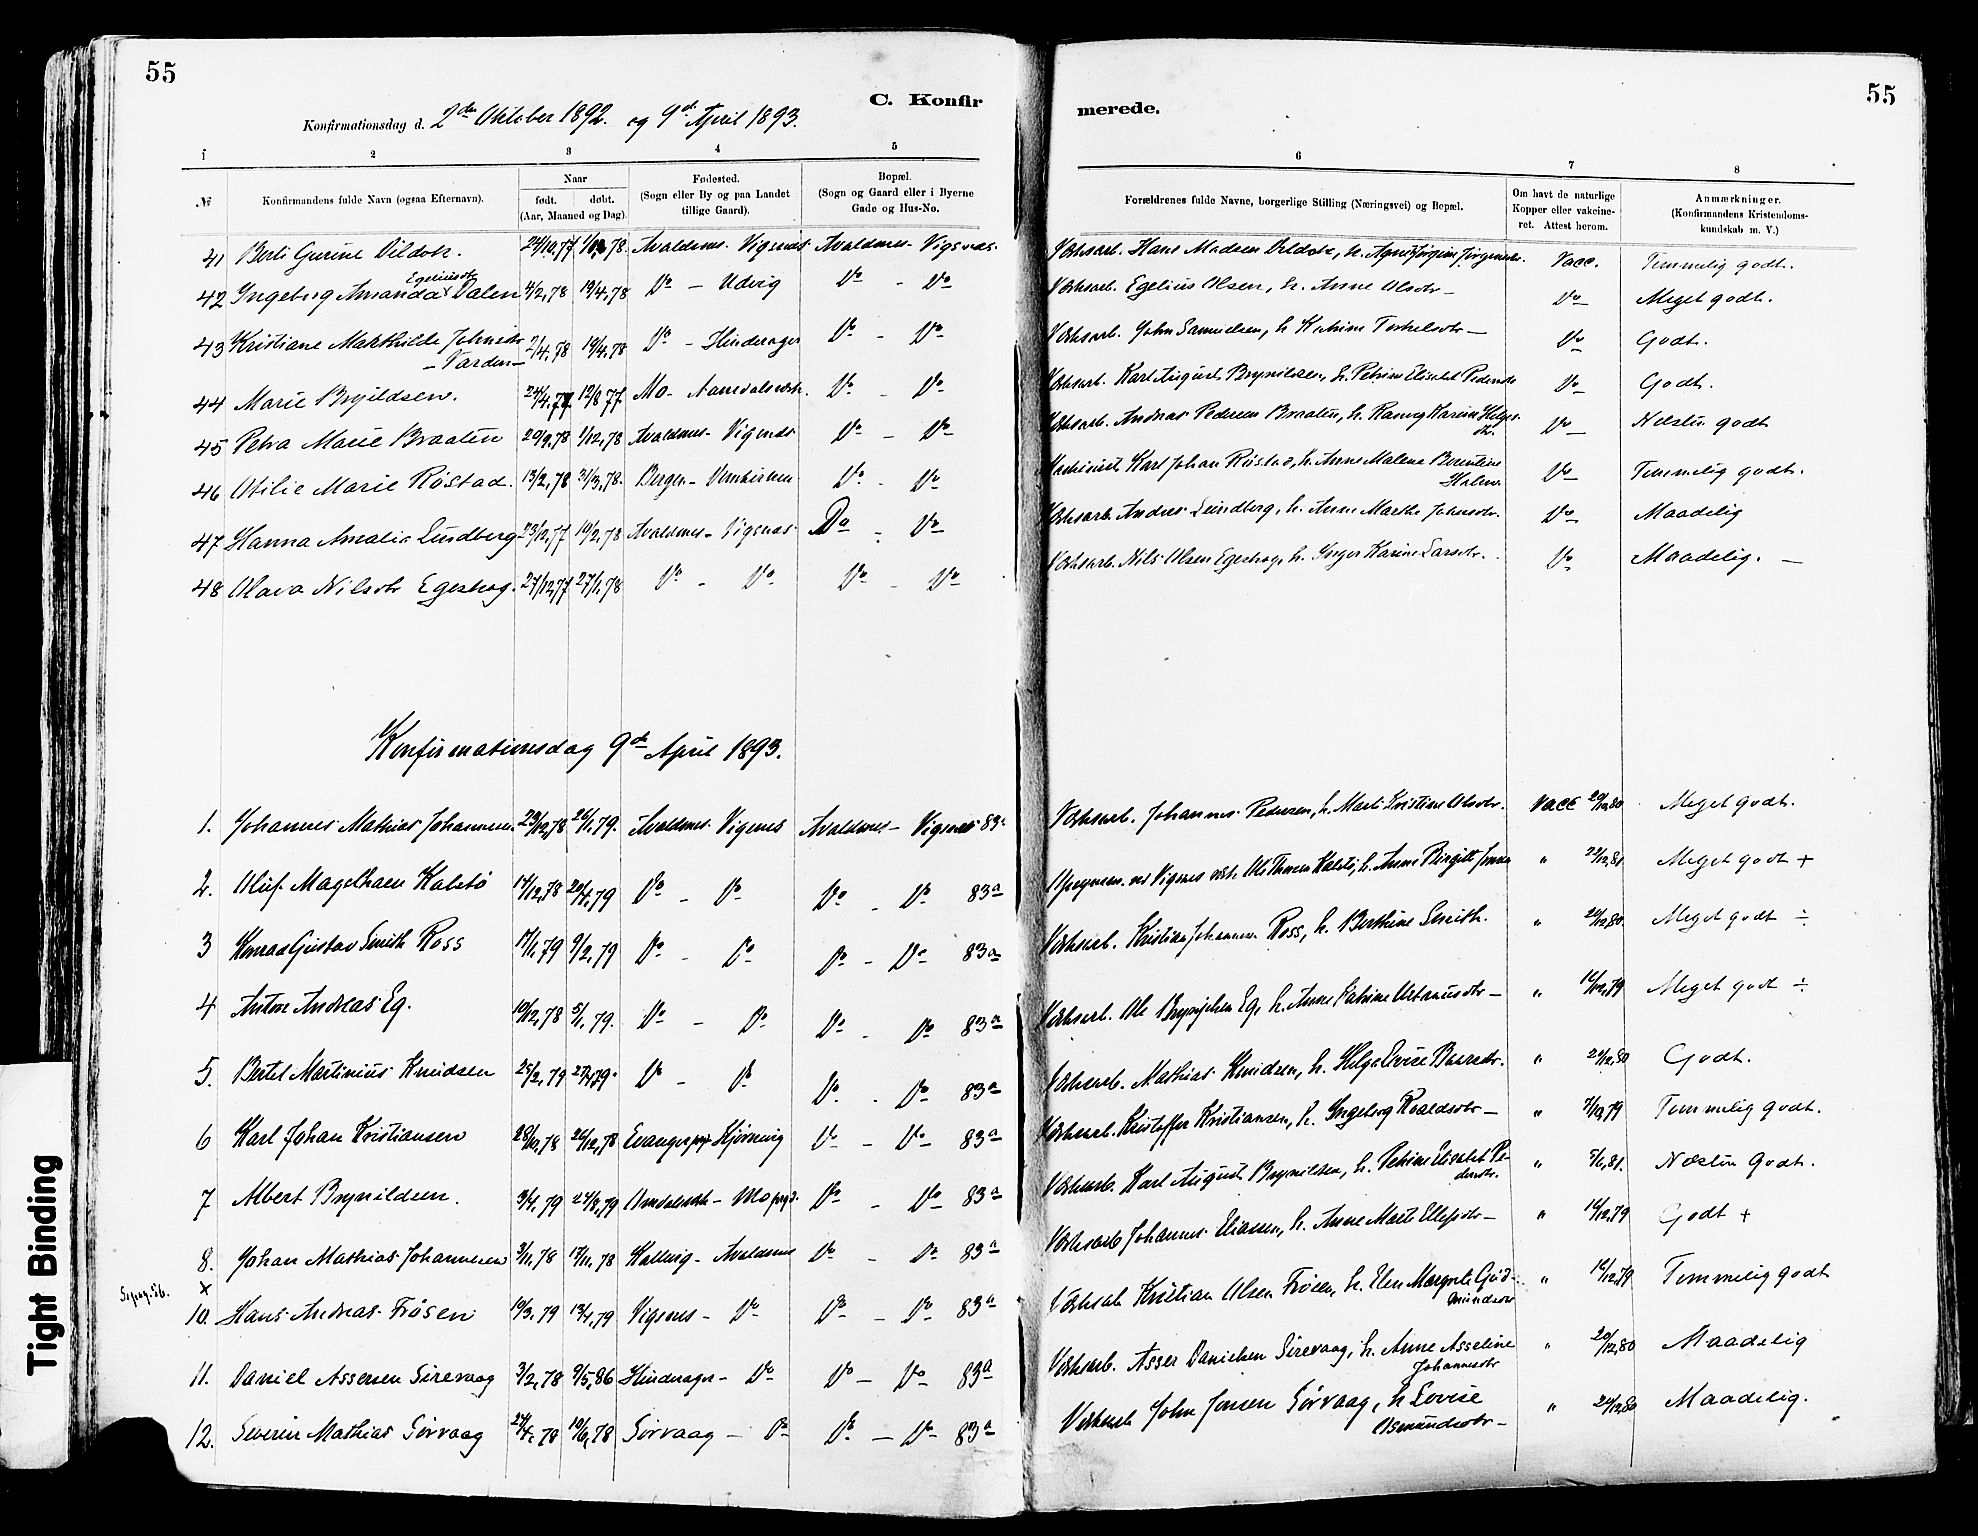 55
C. Konfir
Konfirmationsdag d. 2den Oktober 1892. og 9d. April 1893.
1 2 3 4 5
№ Konfirmandens fulde Navn (ogsaa Efternavn). Naar født. døbt. (Aar, Maaned og Dag). Fødested. (Sogn eller By og paa Landet tillige Gaard). Bopæl. (Sogn og Gaard eller i Byerne Gade og Hus-No.
41 Berti Gurine 24/10,77 78. Avaldsnes - Vigsnæs Avaldsnes - Vigsnæs.
Egeliusdtr
42 Ingeborg Amanda Dalen 4/2,78 19/4,78 Do - Udvig Do - Do
43 Kristiane Makthilde Johnsdtr 2/4,78 19/4,78 Do - Hinderager Do - Do
- Varden -
44 Marie Brynildsen. 24/4,77 12/8 77. Mo - Do - Do
45 Petra Marie Braaten 20/9,78 1/12,78 Avaldsnes - Vigsnæs Do - Do
46 Otilie Marie Röstad. 13/2,78 31/3,78. Bergen - Do - Do
47 Hanna Amalia Lundberg 23/12,77 10/2,78 Avaldsnes - Vigsnæs Do - Do
48 Olava Nilsdtr Egeskog. 27/12,77 27/1,78 Do - Do Do - Do
Konfirmationsdag 9de April 1893.
1. Johannes Mathias Johannesen. 29/12,78 26/1,79. Avaldsnes Vigsnes Avaldsnes - Vigsnæs 83a
2. Oluf Magelhaen Kalstö 14/12,78 20/4,79 Do - Do Do - Do 83a
3 Konrad Gustav Smith Ross 17/1,79 9/2,79 Do - Do Do - Do 83a
4 Anton Andreas Eg. 10/12,78 5/1,79. Do - Do Do - Do 83a
5. Bertel Martinius Knudsen 25/2,79 27/4,79. Do - Do Do - Do 83a
6 Karl Johan Kristiansen 28/10,78 26/12,78 Do - Do 83a
7 Albert Brynildsen. 3/4,79 24/8,79 - Mo prgd. Do - Do 83a
8. Johan Mathias Johannesen 3/11,78 17/11,78 Kallevig - Avaldsnes Do - Do 83a
x
10. Hans Andreas Frösen 19/3,79 13/4,79 Vigsnes - Do Do - Do 83a
11. Daniel Assersen Sirevaag 3/2,78 9/5,86 Hinderager - Do Do - Do 83a
12. Severin Mathias Sörvaag 24/4,78 10/6,78 Sörvaag - Do Do - Do 83a
Tight Binding
55
merede.
6 7 8
Forældrenes fulde Navne, borgerlige Stilling (Næringsvei) og Bopæl. Om havt de naturlige Kopper eller vakcineret. Attest herom. Anmærkninger. (Konfirmandens Kristendomskundskab m. V.)
Værksarb. Hans Madsen h. Vacc. Temmelig godt.
Værksarb. Egelius Olsen, h. Anne Olsdtr - Do Meget godt.
Værksarb. John Samuelsen, h. Katrine Torkelsdtr - Do Godt.
Værksarb. Karl August Brynildsen, h. Petrine Elisabet Pedersdtr Do Godt.
Værksarb. Andreas Pedersen Braaten, h. Karine Helgesdtr. Do Næsten godt
Maskinist Karl Johan Röstad, h. Anne Malene Berentine Do Temmelig godt.
Værksarb. Andreas Lundberg, h. Anne Marthe Johnsdtr. Do Maadelig
Værksarb. Nils Olsen Egeskog, h. Inger Karine Larsdtr. Do Maadelig. -
Værksarb. Johannes Pedersen, h. Marti Kristine Olsdtr. Vacc 20/12,80 Meget godt.
ved Vigsnes Kalstö, h. Anne Birgitte Jensen " 22/12,81 Meget godt +
Værksarb. Kristian Johannesen Ross, h. Berthine Smith. " 20/12,80. Meget godt ÷
Værksarb. Ole Eg, h. Anne " 16/12,79 Meget godt ÷
Værksarb. Mathias Knudsen, h. Helga Lovise " 20/12,80 Godt.
Værksarb. Kristoffer Kristiansen, h. Ingeborg Roaldsdtr - " 7/10,79 Temmelig godt.
Værksarb. Karl August Brynildsen, h. Petrine Elisabet Pedersdtr. " 5/1,81. Næsten Godt.
Værksarb Johannes Eliassen, h. Anne Marte - " 16/12,79 Godt +
Værksarb Kristian Olsen Frösen, h. Elen Margrete Gudmundsdtr " 16/12,79 Temmelig godt
Værksarb. Asser Danielsen Sirevaag, h. Anne Asseline Johannesdtr " 20/12,80 Maadelig
Værksarb John Jonsen Sörvaag, h Lovise Osmundsdtr - " 20/12,80 Maadelig.